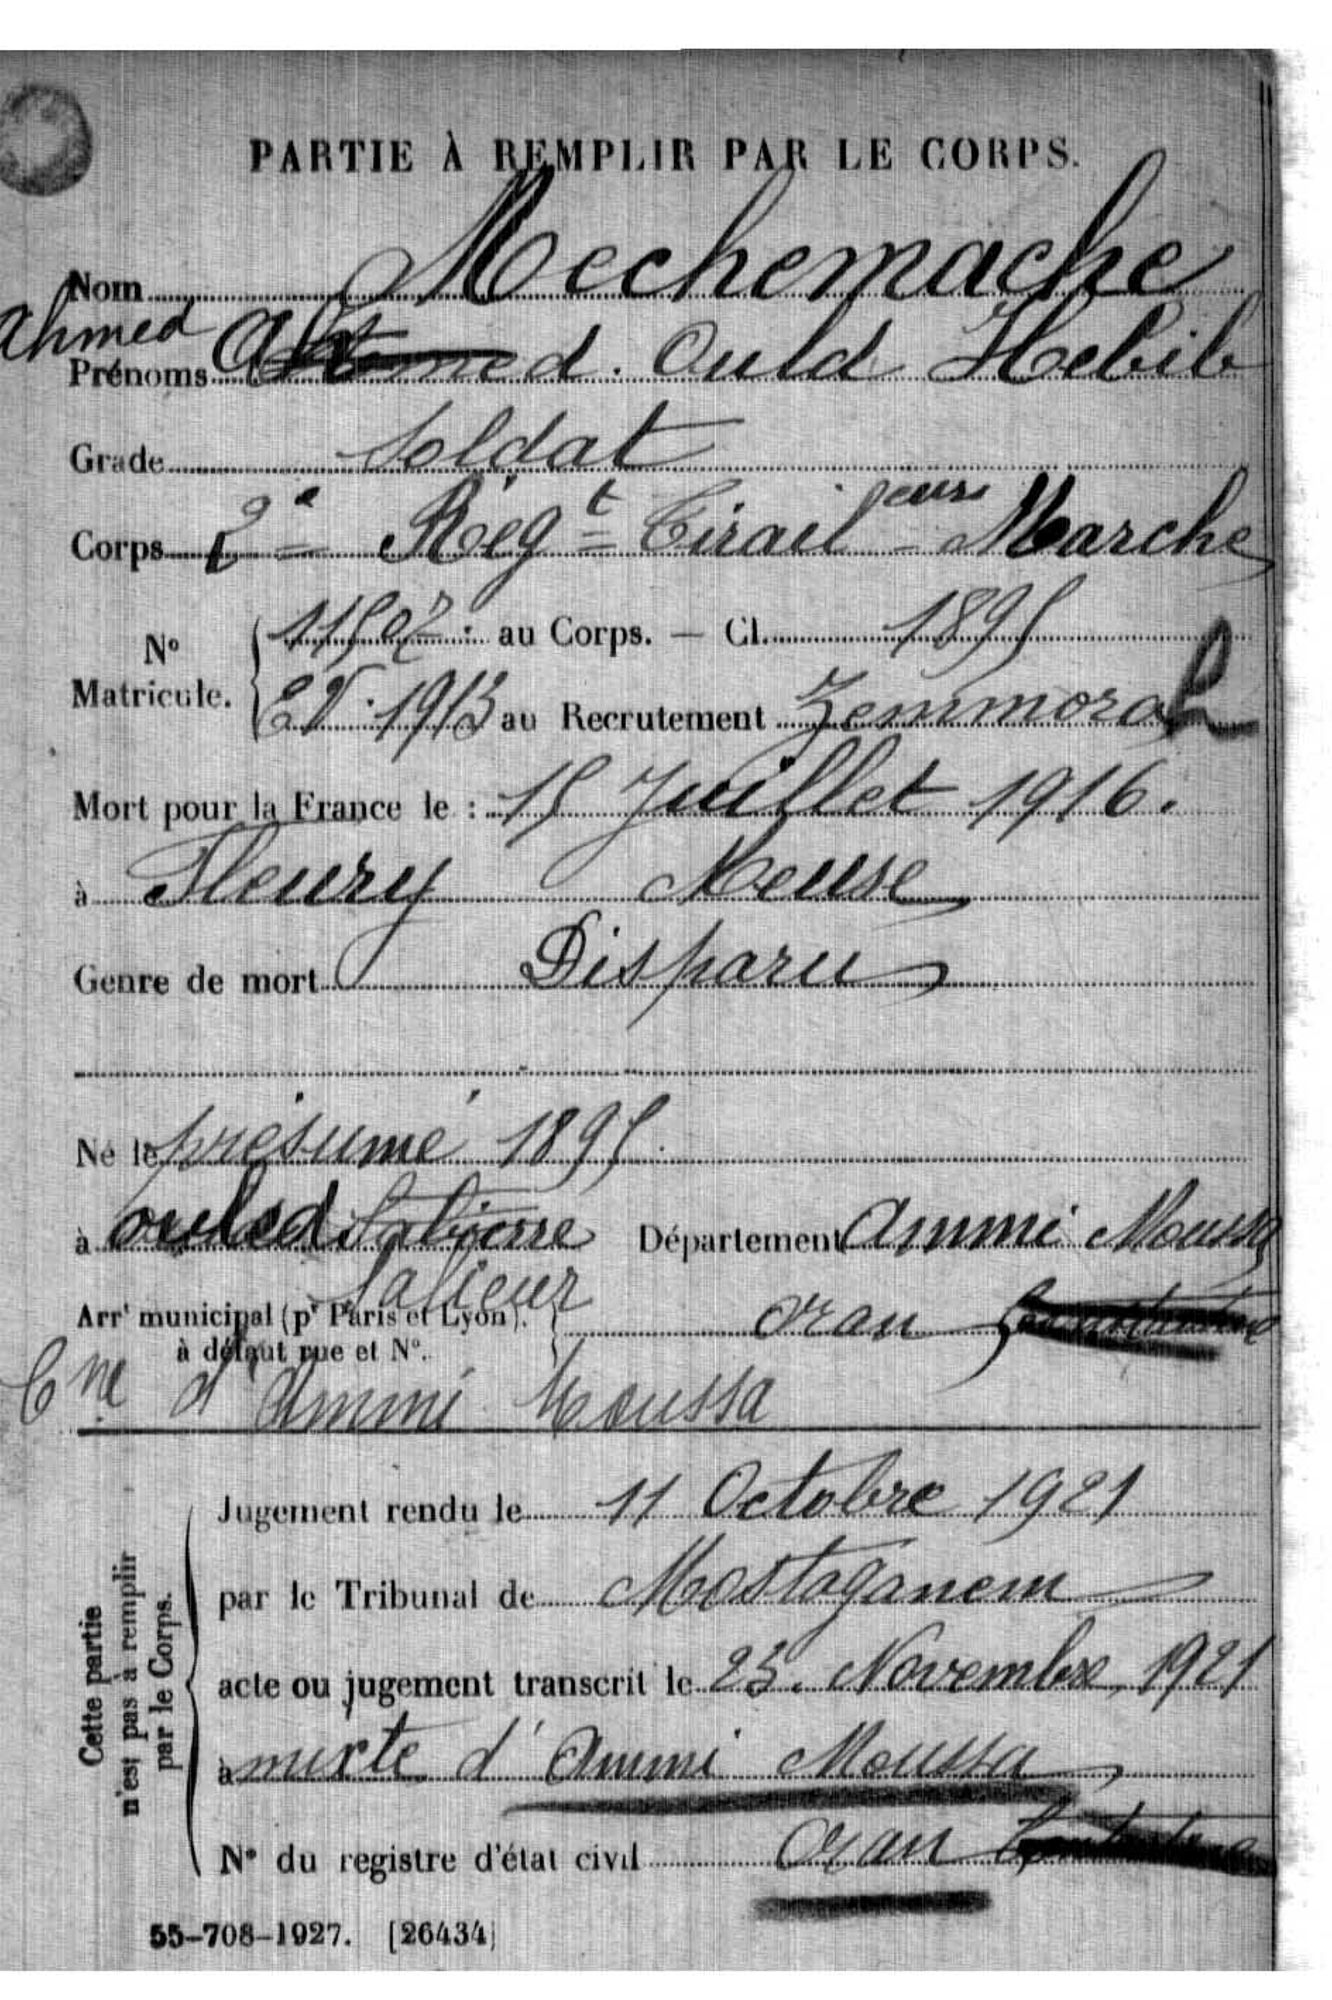 PARTIE À REMPLIR PAR LE CORPS.
Nom Mechemache
Ahmed
Prénoms Ahmed. Ould Hebib
Grade Soldat
Corps 2e Régt Tirailleurs Marche
No Matricule. { 11507. au Corps. — Cl. 1895
EV. 1913 au Recrutement Zemmorah
Mort pour la France le : 15 Juillet 1916.
à Fleury Meuse
Genre de mort Disparu
Né le présumé 1895.
à ouled Département Ammi Moussa
Arrt municipal (pr Paris et Lyon). } Oran Constantine
à défaut rue et No.
Cne d'Ammi Moussa
Cette partie n'est pas à remplir par le Corps.
Jugement rendu le 11 Octobre 1921
par le Tribunal de Mostaganem
acte ou jugement transcrit le 23. Novembre 1921
à mixte d'Ammi Moussa
No du registre d'état civil Oran
55-708-1927. [26434]